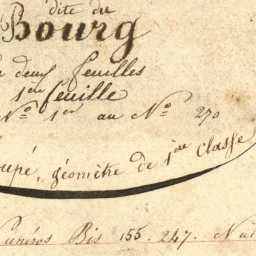 dite du
Bourg
deux feuilles
1ere feuille
N° 1er au N° 270
géomètre de 1ère Classe
Numéros Bis 155. 247.